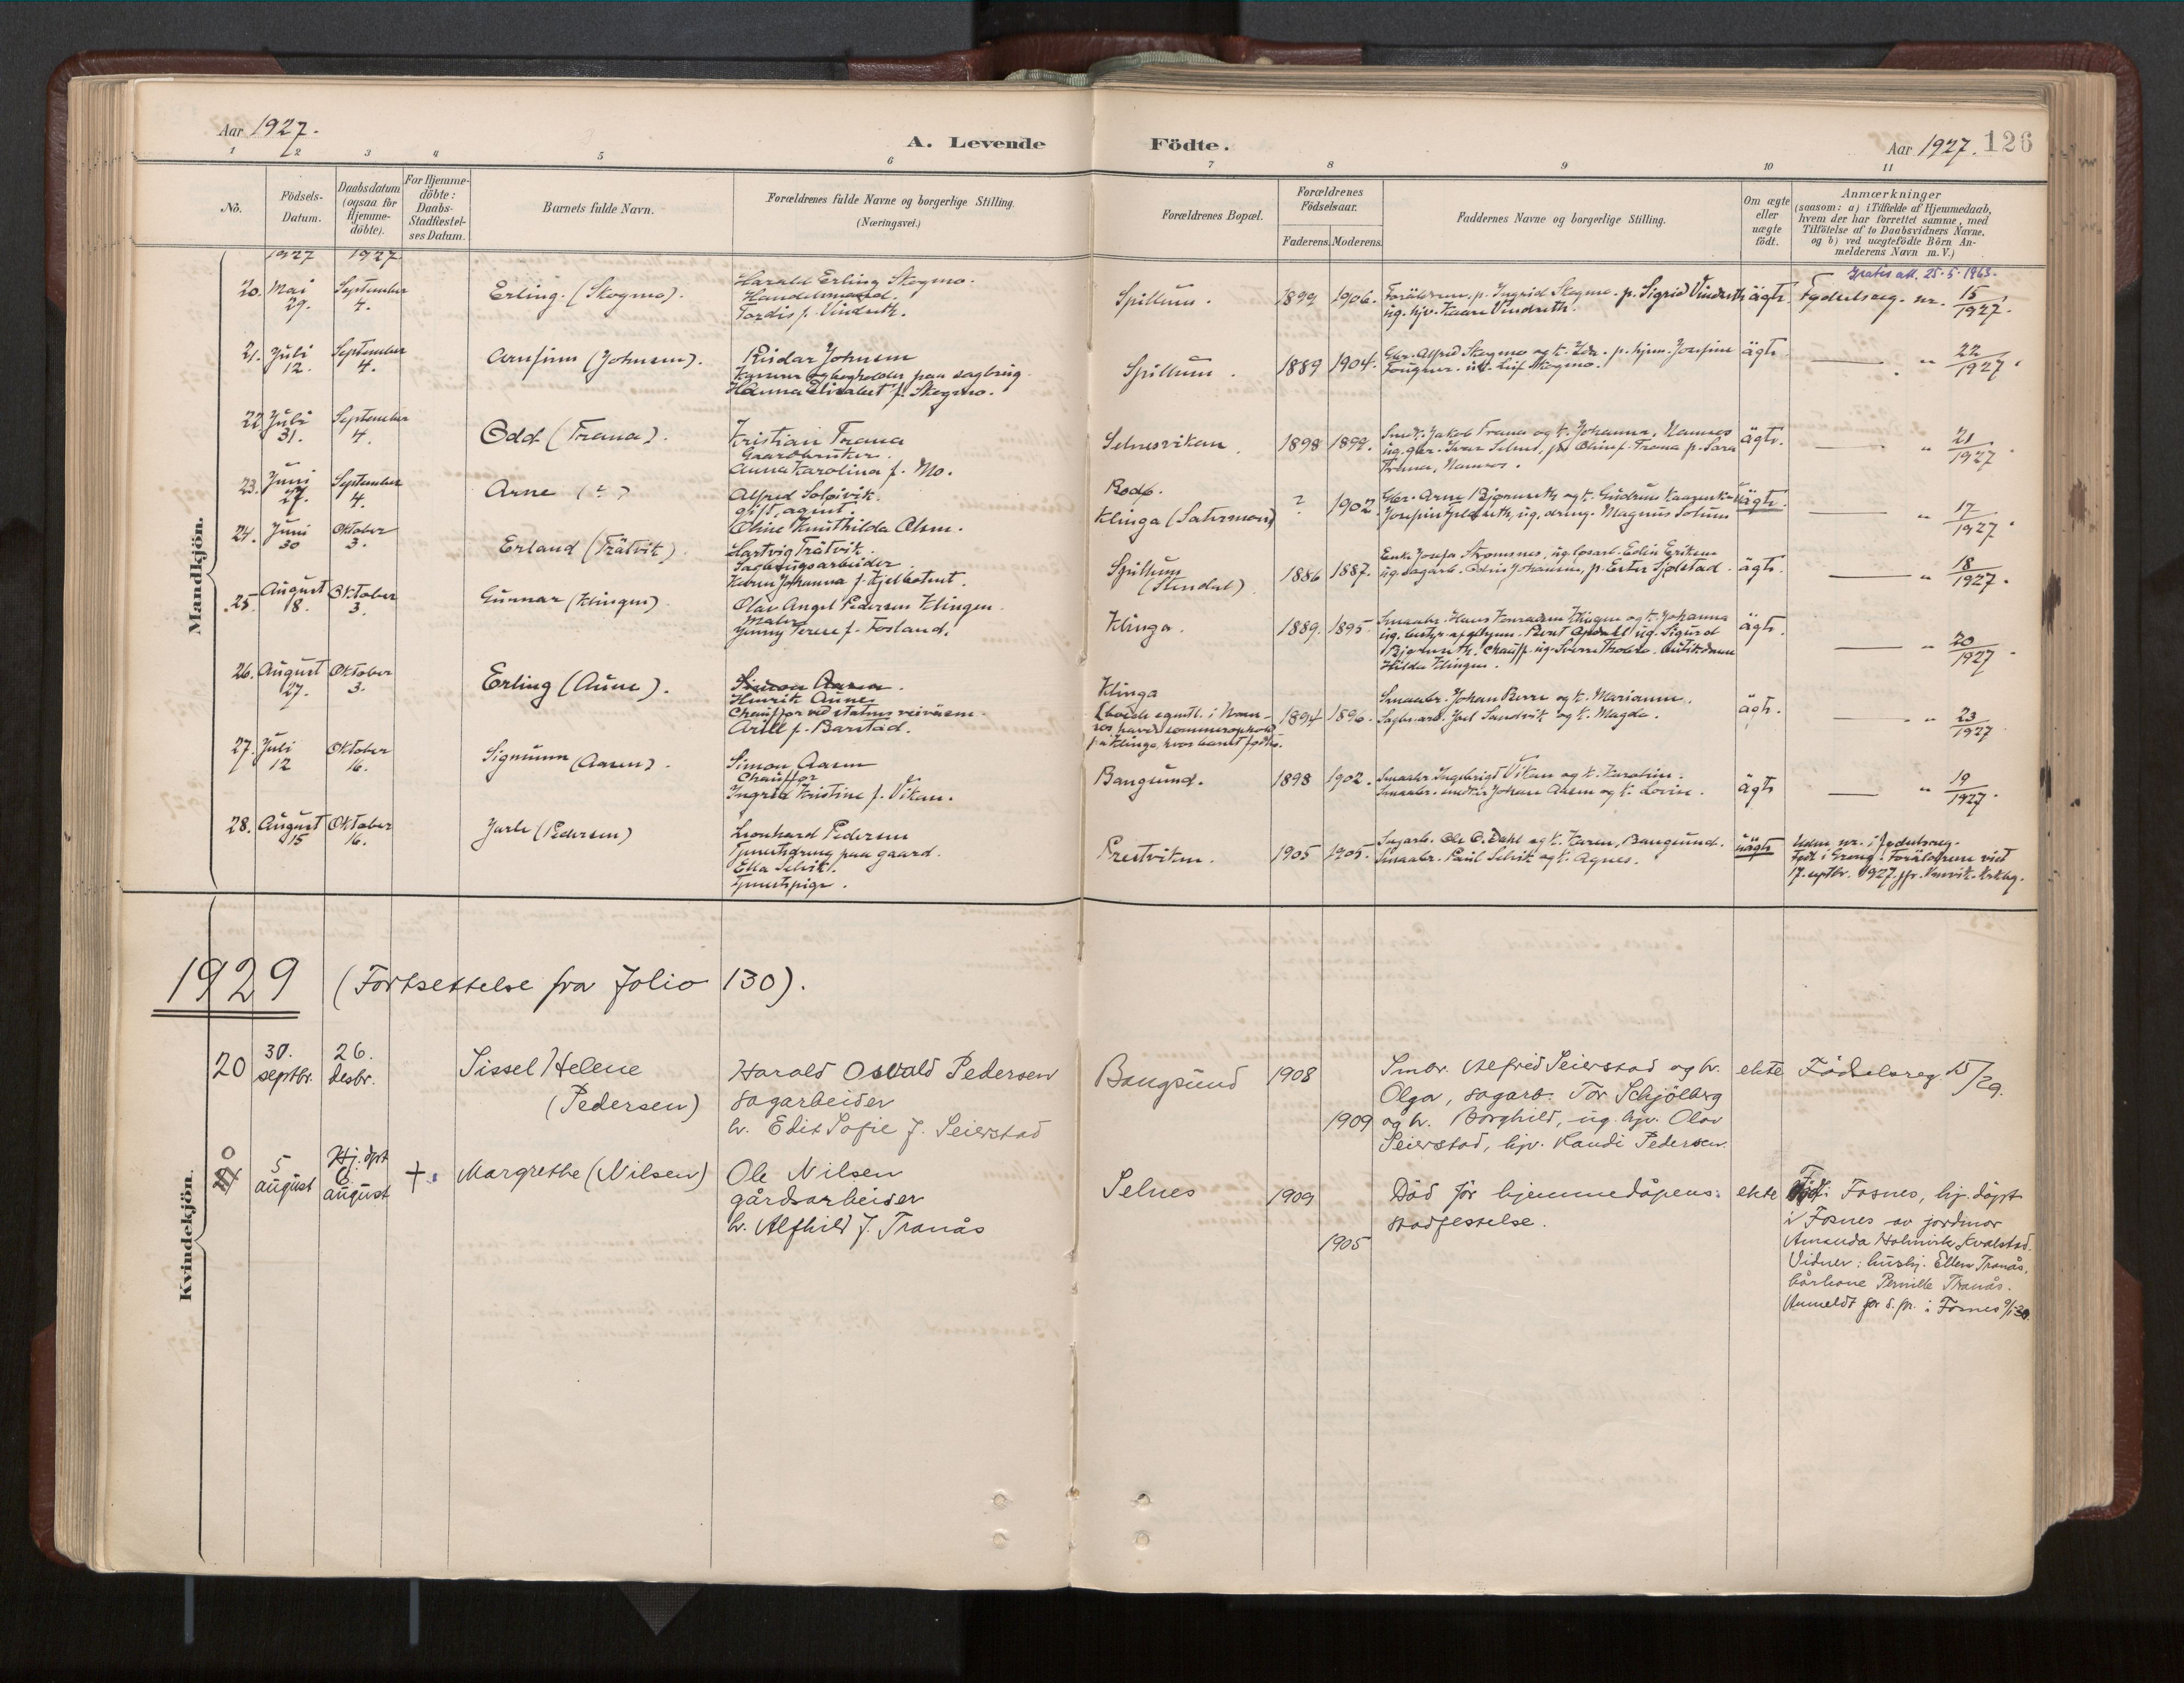 Aar 1927.
A. Levende Födte.
Aar 1927. 126
1 2 3 4 5 6 7 8 9 10 11
No.
Födsels-
Datum.
Daabsdatum
(ogsaa for
Hjemme-
döbte).
For Hjemme-
döbte:
Daabs-
Stadfæstel-
ses Datum.
Barnets fulde Navn.
Forældrenes fulde Navne og borgerlige Stilling.
(Næringsvei.)
Forældrenes Bopæl.
Forældrenes
Födselsaar.
Faderens. Moderens.
Faddernes Navne og borgerlige Stilling.
Om ægte
eller
uægte
födt.
Anmærkninger
(saasom: a) i Tilfælde af Hjemmedaab,
hvem der har forrettet samme, med
Tilföielse af to Daabsvidners Navne,
og b) ved uægtefödte Börn An-
melderens Navn m. V.)
Mandkjön.
1927 1927
20. Mai 29. September 4. Erling. (Skogmo).
Harald Erling Skogmo.
Handelsmand.
Tordis f. Vindseth.
Spillum. 1899 1906.
Foräldrene, p. Ingrid Skogmo. p. Sigrid Vindseth
ug. hjv. Kaare Vindseth.
ägte.
Gratis att. 25-5-1963.
Fødselsreg. nr. 15/1927.
21. Juli 12. September 4. Arnfinn (Johnsen).
Reidar Johnsen
kasserer og bogholder paa sagbrug.
Hanna Elisabet f. Skogmo.
Spillum. 1889 1904.
Gbr. Alfred Skogmo og k. Ida. p. hjem. Josefine
Fougner. ug. Leif Skogmo.
ägte
— " 22/1927.
22. Juli 31. September 4. Odd (Trana).
Kristian Trana
Gaardbruker.
Anna Karolina f. Mo.
Selnesvikan 1898 1899.
Smed. Jakob Trana og k. Johanna, Namsos
ug. gbr. Ivar Selnes, p. Oline f. Trana p. Sara
Trana, Namsos.
ägte.
— " 21/1927.
23. Juni 27. September 4. Arne (?)
Alfred Solsivik.
gift, agent.
Oline Knuthilda Olsen.
Bodø.
Klinga (Satermoen) ? 1902.
uägte.
— " 17/1927.
24. Juni 30 Oktober 3. Erland (Trätvik)
Hartvig Trätvik.
Sagbrugsarbeider.
Karen Johanna f. Kjelbotn.
Spillum
(Stendal) 1886 1887.
Enke Josefa Strømsnes, ug. løsarb. Edin Eriksen
ug. sagarb. Johansen, p. Ester Sjølstad.
ägte.
— " 18/1927.
25. August 18. Oktober 3. Gunnar (Klingen)
Olav Angel Pedersen Klingen.
Maler
Jenny Terese f. Fosland.
Klinga. 1889. 1895.
Smaabr. Hans Konradsen Klingen og k. Johanna
ug. Sigurd
Bjørnseth. Chauff.
Hilda Klingen.
ägte.
— " 20/1927.
26. August 27. Oktober 3. Erling (Aune).
Simon Aasen.
Henrik Aune
Chauffør ved statens veivesen.
Arill f. Barstad.
Klinga
(boede egentl. i Nam-
sos, havde sommerophold
paa Klinga, hvor barnet fødtes.
1894 1896.
Smaabr. Johan Berre og k. Marianne.
Sagbr.arb. Joel Sandvik og k. Magda.
ägte.
— " 23/1927
27. Juli 12 Oktober 16. Sigmunn (Aasen).
Simon Aasen
Chauffør
Ingrid Kristine f. Vikan.
Bangsund. 1898 1902.
Smaabr. Ingebrigt Vikan og k. Karoline.
Smaabr. Johan Aasen og k. Lovise.
ägte
— " 19/1927.
28. August 15 Oktober 16. Jarle (Pedersen)
Leonhard Pedersen
Tjenestedreng paa gaard.
Ella Selvik.
Tjenestepige.
Prestviken. 1905 1905.
Sagarb. Ole C. Dahl og k. Karen, Bangsund.
Smaabr. Paul Selvik og k. Agnes.
uägte
Uden nr. i fødselsreg.
Født i Grong. Foräldrene viet
17. septbr. 1927.
Kvindekjön.
1929 (Fortsettelse fra folio 130).
20 30. septbr. 26. desbr. Sissel Helene
(Pedersen)
Harald Osvald Pedersen
sagarbeider
h. Edit Sofie f. Seierstad
Bangsund 1908 1909
Smbr. Alfred Seierstad og h.
Olga, sagarb. Tor Schjölberg
og h. Borghild, ug. hjv. Olav
Seierstad, hjv. Randi Pedersen.
ekte Födselsreg 15/29.
0 5 august Hj. dpt 6 august † Margrethe (Nilsen)
Ole Nilsen
gårdsarbeider
h. Alfhild f. Tranås
Selnes 1909 1905
Död för hjemmedåpens
stadfestelse.
ekte
Född i Fosnes, hj. döpt
i Fosnes av jordmor
Amanda Holmvik, Kvalstad.
Vidner: hushj. Ellen Tranås,
kårkone Pernille Tranås.
Anmeldt for s. pr. i Fosnes 9/1 30.